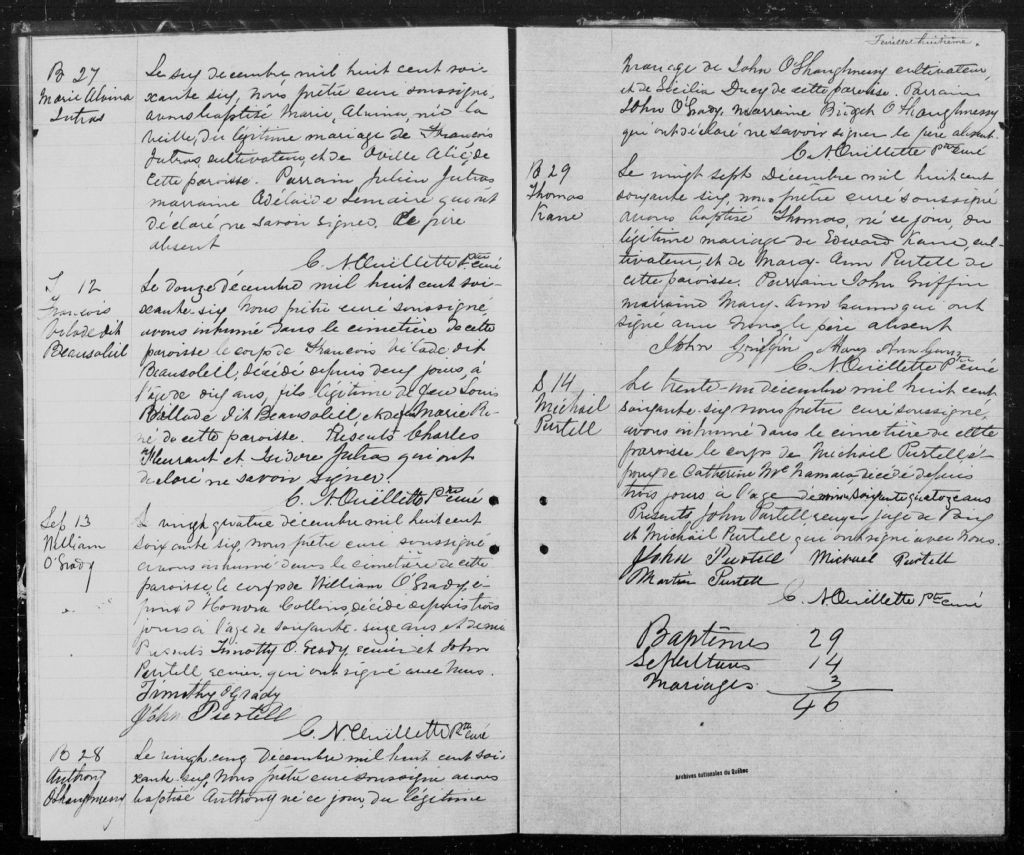 B 27
Marie Alvina
Jutras
Le six décembre mil huit cent soi-
xante six, nous prêtre curé soussigné,
avons baptisé Marie, Alvina, née la
veille, du légitime mariage de François
Jutras, cultivateur, et de Oville Alie, de
cette paroisse. Parrain Julien Jutras
marraine Adélaide Lemaire qui ont
déclaré ne savoir signer. Le père
absent
C. N. Ouillette Ptre curé
S 12
François
Vilade dit
Beausoleil
Le douze décembre mil huit cent soi-
xante-six, Nous prêtre curé soussigné,
avons inhumé dans le cimetière de cette
paroisse le corps de François Vilade, dit
Beausoleil, décédé depuis deux jours, à
l'age de dix ans, fils légitime de feu Louis
Billade dit Beausoleil et de Marie Re-
né de cette paroisse. Présents Charles
Fleurant et Isidore Jutras qui ont
declaré ne savoir signer.
C. N. Ouillette Ptre curé
Sep 13
William
O'Grady
L vingt quatre décembre mil huit cent
soixante six, nous prêtre curé soussigné
avons inhumé dans le cimetière de cette
paroisse, le corps de William O'Grady, é-
poux d'Honora Collins, décédé depuis trois
jours à l'age de soixante-suize ans et demi
Presents Timothy O'Grady senior et John
Purtell senior, qui ont signé avec Nous.
Timothy O Grady
John Purtell
C. N. Ouillette Ptre curé
B 28
Anthony
O'Shaughnessy
Le vingt-cinq Décembre mil huit cent soi-
xante-six, Nous prêtre curé soussigné avons
baptisé Anthony né ce jour, du légitime
Feuillet huitième.
mariage de John O'Shaughnessy cultivateur,
et de Cécilia Ducy de cette paroisse. Parrain
John O'Grady, marraine Bridget O'Shaughnessy
qui ont déclaré ne savoir signer le père absent.
C. N. Ouillette Ptre curé
B 29
Thomas
Kane
Le vingt sept Décembre mil huit cent
soixante six, nous prêtre curé soussigné
avons baptisé Thomas, né ce jour, du
légitime mariage de Edward Kane, cul-
tivateur, et de Mary-Ann Purtell de
cette paroisse. Parrain John Griffin
marraine Mary-Ann Gunn qui ont
signé avec Nous, le père absent
John Griffin Mary Ann Gunn
C. N. Ouillette Ptre curé
S 14
Michael
Purtell
Le trente-un décembre mil huit cent
soixante-six nous prêtre curé soussigné,
avons inhumé dans le cimetière de cette
paroisse le corps de Michael Purtell é-
poux de Catherine McNamara, décédé depuis
trois jours à l'age de soixante quatoze ans
Présents John Purtell, juge de Paix
et Michael Purtell qui ont signé avec Nous.
John Purtell Michael Purtell
Martin Purtell
C. N. Ouillette Ptre curé
Baptêmes 29
Sépultures 14
Mariages 3
46
Archives nationales du Québec